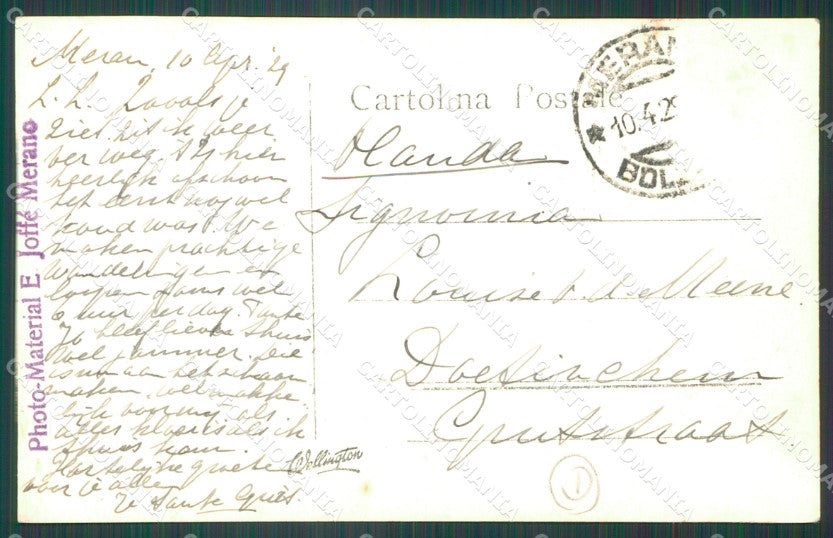 Meran, 10 Apr. '29
L. L. Zooals je
ziet zit ik weer
ver weg. 't Is hier
heerlijk ofschoon
het eerst nog wel
koud was. We
maken prachtige
wandelingen en
loopen soms wel
6 uur per dag. Tante
Jo bleef liever thuis
wel jammer. Die
is nu aan het schoon
maken, wel makke-
lijk voor mij als
alles klaar is als ik
thuis kom.
Hartelijke groeten
voor U allen
Je Tante
Photo-Material E. Joffé Merano
Cartolina Postale
MERAN
10.4.29
BOL
Olanda
Signorina
Louise v. d. Meene
Doetinchem
straat
Wellington
1
CARTOLINOMANIA